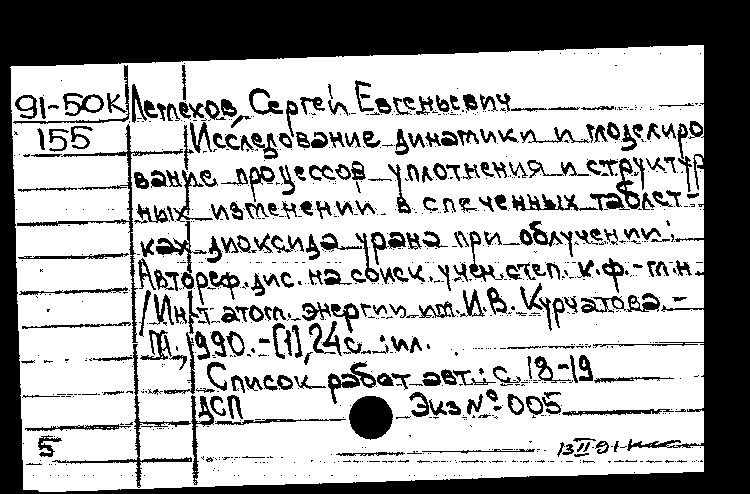 91-50К Лемехов, Сергей Евгеньевич
155 Исследование динамики и моделиро
вание процессов уплотнения и структур
ных изменений в спеченных таблет-
ках диоксида урана при облучении:
Автореф. дис. на соиск. учен. степ. к.ф.-м.н.
/Ин-т атом. энергии им. И.В. Курчатова.-
М., 1990.-[1], 24с. :ил.
Список работ авт.: с. 18-19
ДСП Экз № 005
5 13 II 91